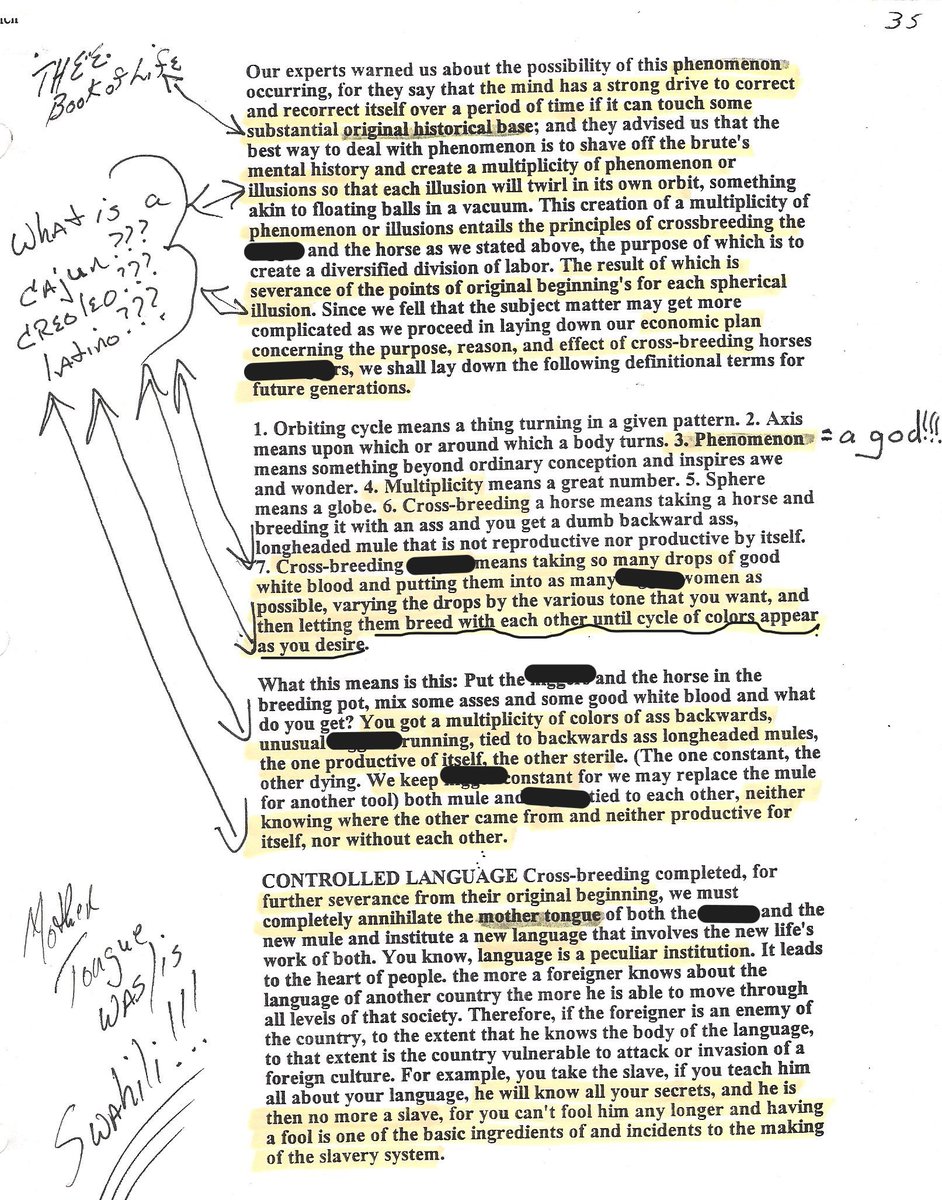 35
THEE
Book of Life
Our experts warned us about the possibility of this phenomenon
occurring, for they say that the mind has a strong drive to correct
and recorrect itself over a period of time if it can touch some
substantial original historical base; and they advised us that the
best way to deal with phenomenon is to shave off the brute's
mental history and create a multiplicity of phenomenon or
illusions so that each illusion will twirl in its own orbit, something
akin to floating balls in a vacuum. This creation of a multiplicity of
phenomenon or illusions entails the principles of crossbreeding the
and the horse as we stated above, the purpose of which is to
create a diversified division of labor. The result of which is
severance of the points of original beginning's for each spherical
illusion. Since we fell that the subject matter may get more
complicated as we proceed in laying down our economic plan
concerning the purpose, reason, and effect of cross-breeding horses
rs, we shall lay down the following definitional terms for
future generations.
What is a
cajun???
creoleo???
latino???
1. Orbiting cycle means a thing turning in a given pattern. 2. Axis
means upon which or around which a body turns. 3. Phenomenon = a god!!!
means something beyond ordinary conception and inspires awe
and wonder. 4. Multiplicity means a great number. 5. Sphere
means a globe. 6. Cross-breeding a horse means taking a horse and
breeding it with an ass and you get a dumb backward ass,
longheaded mule that is not reproductive nor productive by itself.
7. Cross-breeding means taking so many drops of good
white blood and putting them into as many women as
possible, varying the drops by the various tone that you want, and
then letting them breed with each other until cycle of colors appear
as you desire.
What this means is this: Put the and the horse in the
breeding pot, mix some asses and some good white blood and what
do you get? You got a multiplicity of colors of ass backwards,
unusual running, tied to backwards ass longheaded mules,
the one productive of itself, the other sterile. (The one constant, the
other dying. We keep constant for we may replace the mule
for another tool) both mule and tied to each other, neither
knowing where the other came from and neither productive for
itself, nor without each other.
CONTROLLED LANGUAGE Cross-breeding completed, for
further severance from their original beginning, we must
completely annihilate the mother tongue of both the and the
new mule and institute a new language that involves the new life's
work of both. You know, language is a peculiar institution. It leads
to the heart of people. the more a foreigner knows about the
language of another country the more he is able to move through
all levels of that society. Therefore, if the foreigner is an enemy of
the country, to the extent that he knows the body of the language,
to that extent is the country vulnerable to attack or invasion of a
foreign culture. For example, you take the slave, if you teach him
all about your language, he will know all your secrets, and he is
then no more a slave, for you can't fool him any longer and having
a fool is one of the basic ingredients of and incidents to the making
of the slavery system.
Mother
Tongue
WAS/is
Swahili!!!